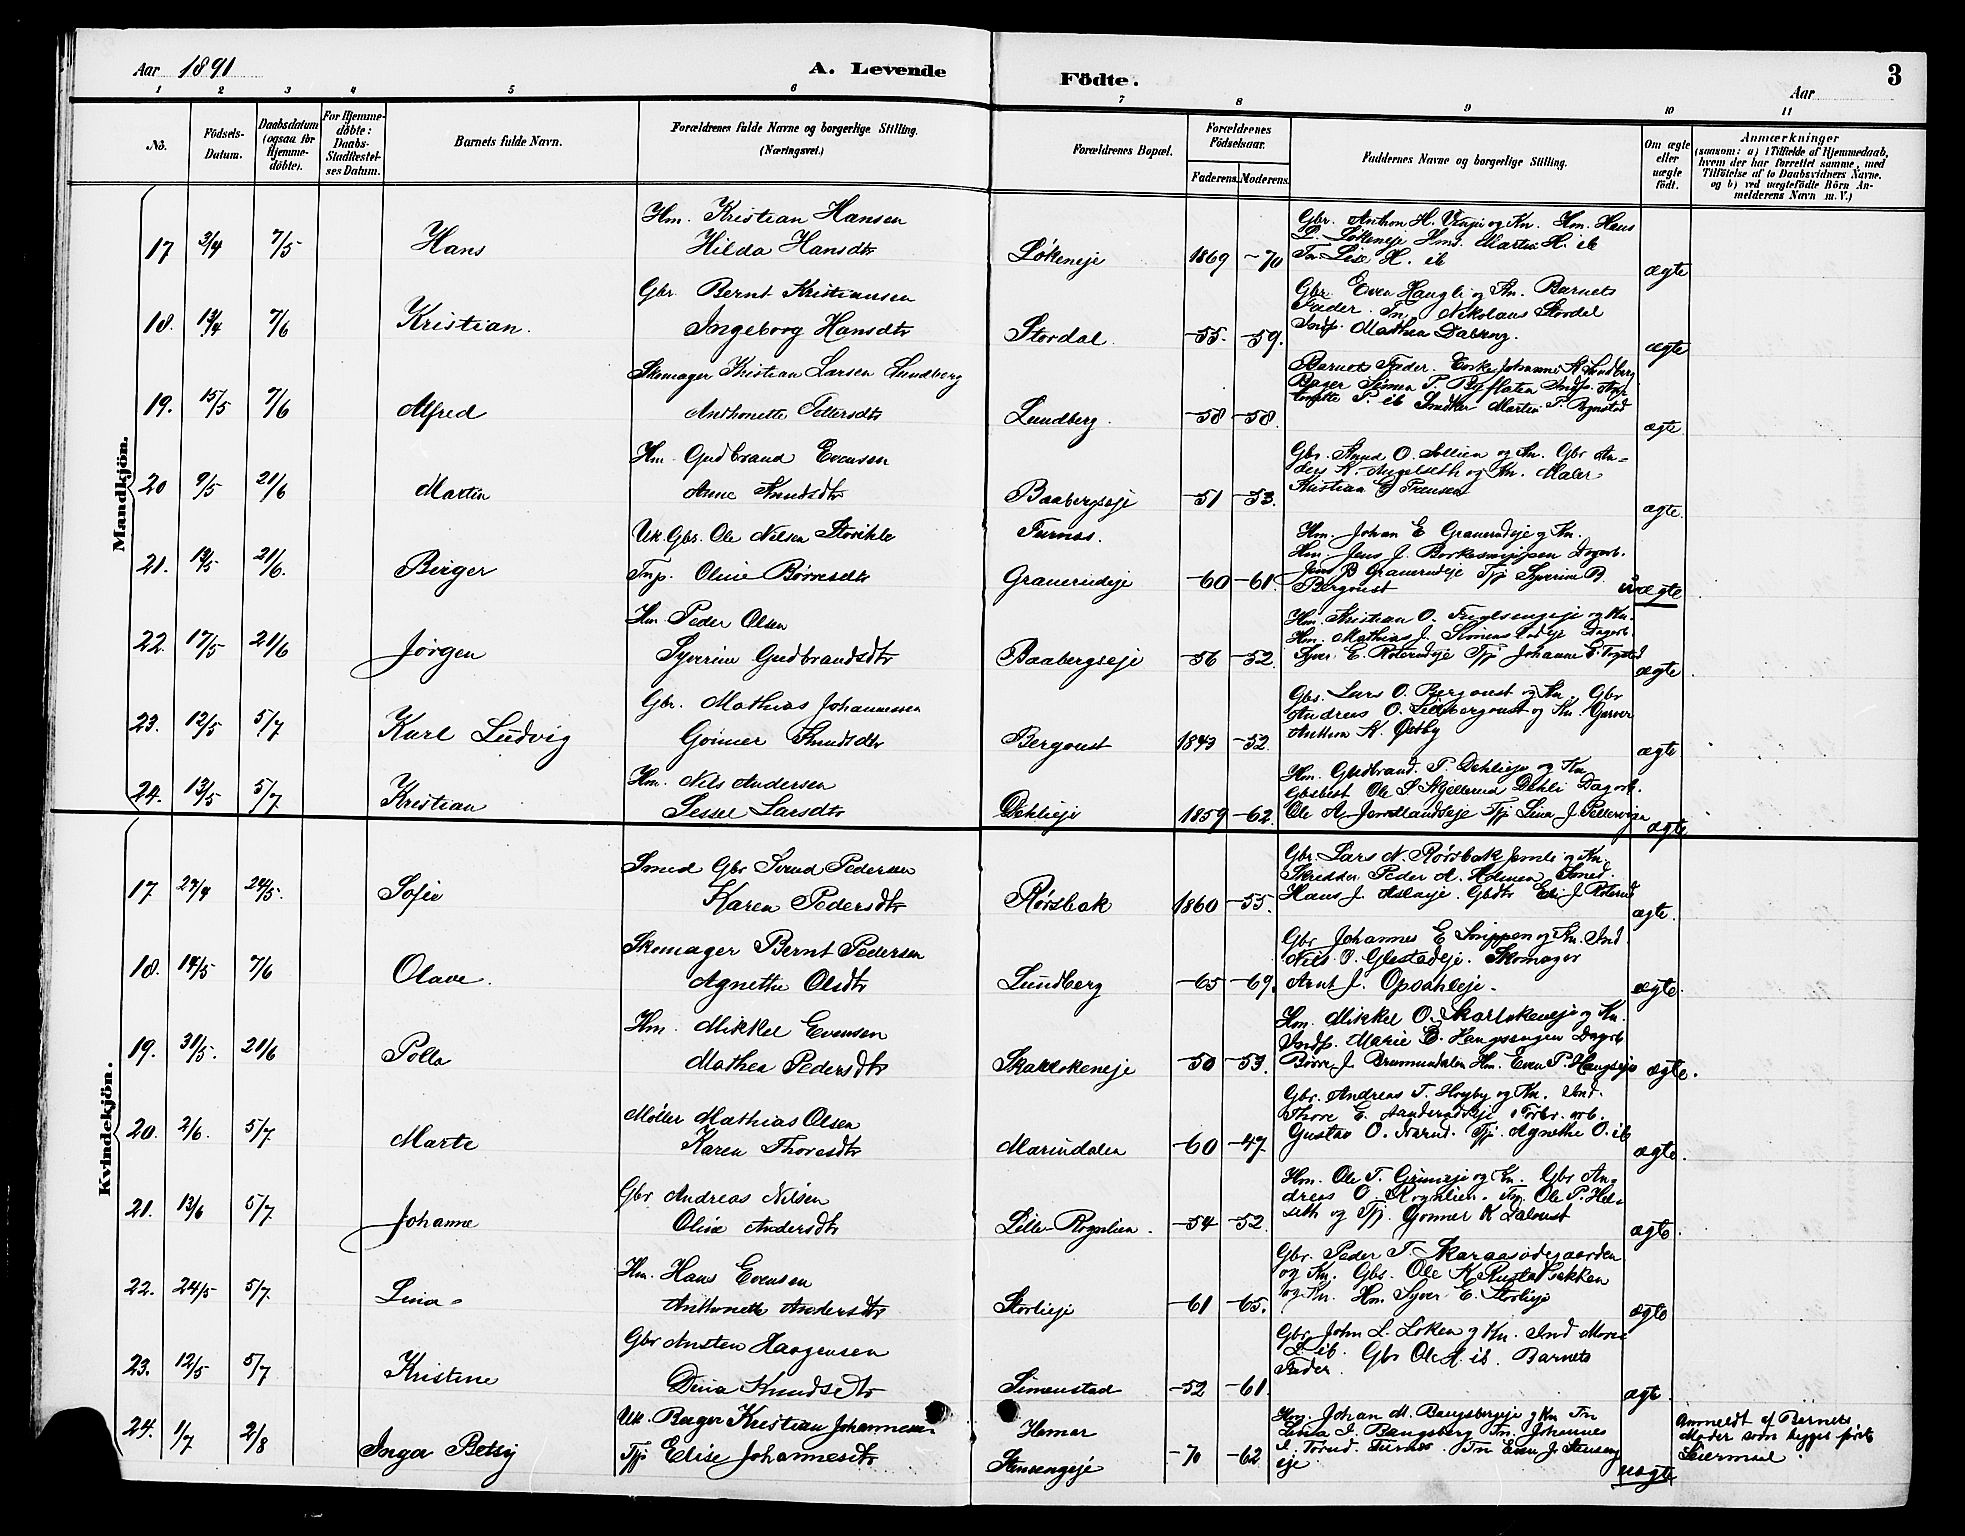 Aar 1891
A. Levende Födte.
Aar
3
1 2 3 4 5 6 7 8 9 10 11
No.
Födsels-Datum.
Daabsdatum (ogsaa for Hjemme-döbte).
For Hjemme-döbte: Daabs-Stadfæstel-ses Datum.
Barnets fulde Navn.
Forældrenes fulde Navne og borgerlige Stilling. (Næringsvei.)
Forældrenes Bopæl.
Forældrenes Födselsaar.
Faderens. Moderens.
Faddernes Navne og borgerlige Stilling.
Om ægte eller uægte födt.
Anmærkninger
(saasom: a) i Tilfælde af Hjemmedaab, hvem der har forrettet samme, med Tilföielse af to Daabsvidners Navne. og b) ved uægtefödte Börn An-melderens Navn m. V.)
Mandkjön.
17 3/4 7/5 Hans
Hm. Kristian Hansen
Hilda Hansdtr
Løkeneje 1869 -70
Gbr. Anthon H. Vingei og Kn. Hm. Hans
L. Løkeneje Hms. Martin H. ib
Tn Lise H. ib
ægte
18. 13/4 7/6 Kristian.
Gbr. Bernt Kristiansen
Ingeborg Hansdtr
Stordal -55. -59.
Gbr. Even Haugli og Kn. Barnets
Fader. Tn. Nikolaus Stordal
Indp. Mathea Dalseng.
ægte
19. 15/5 7/6 Alfred
Skomager Kristian Larsen Lundberg
Anthonette Pedersdtr
Lundberg. -58 -58.
Barnets Fader. Enke Johanne K Lundberg
Bager Simen P. Byflaten
ægte.
20 9/5 21/6 Martin
Hm. Gudbrand Evensen
Anne Knudsdtr
Baabergseje -51 -53.
Gbr. Knud O. Sollien og Kn. Gbr An-
ders K. Angelseth og Kn. Maler
Kristian G Frensen
ægte.
21. 13/5 21/6. Birger
Uk. Gbr. Ole Nilsen Storihle
Furnes.
Inp. Oline Børresdtr
Grauerudeje -60 -61.
Hm. Johan E Grauerudeje og Kn.
Hm. Jens J. Dagarb.
Jens B Grauerudeje Tj Syverine B.
Bergoust
Uægte
22. 17/5 21/6 Jørgen
Hm. Peder Olsen
Syverine Gudbrandsdtr
Baabergseje -56 -52.
Hm. Kristian O. og Kn.
Hm. Mathias J. Dagarb.
Syver E. Roterudeje Tj Johanne E.
ægte
23. 12/5 5/7 Karl Ludvig
Gbr. Mathias Johannessen
Goiner Knudsdtr
Bergoust 1843 -52.
Gbr. Lars O. Bergoust og Kn. Gbr
Andreas O. Lillebergoust og Kn. Garver
Anthon K. Østby
ægte
24. 13/5 5/7 Kristian
Hm. Nils Andersen
Sessel Larsdtr
Dehlieje 1859 -62.
Hm. Gudbrand. T. Dehlieje og Kn
Ole S Kjellerud Dehli Dagarb.
Ole A. Tj Lina J.
ægte
Kvindekjön.
17 27/4 24/5. Sofie
Smed Gbr Svend Pedersen
Karen Pedersdtr
Rørsbak 1860 -55.
Gbr Lars N. Rørsbak og Kn.
Skredder Peder A. Holmen Smed.
Hans J. Gbdtr Eli J. Roterud
ægte.
18. 14/5 7/6 Olave.
Skomager Bernt Pedersen
Agnethe Olsdtr
Lundberg -65 -69.
Gbr Johannes E Snippen og Kn. Ind
Nils O. Glestadeje. Skomager
Arnt J. Opsahleje.
ægte.
19. 31/5. 21/6 Polla
Hm. Mikkel Evensen
Mathea Pedersdtr
Skarlokeneje -50 -53.
Hm. Mikkel O. Skarlokeneje og Kn.
Indp. Marie E. Dagarb
Børre J. Brumundalen Hm. Even P. Haugseje
ægte.
20. 2/6. 5/7 Marte
Møller Mathias Olsen
Karen Thoresdtr
Marindalen -60 -47.
Gbr. Andreas T. Hegby og Kn. Ind.
Thore E. Aanderudeje Forbr. arb.
Gustav O. Tj. Agnethe O. ib
ægte.
21. 13/6 5/7 Johanne
Gbr Andreas Nilsen
Oline Andersdtr
Lille-Rognlien. -54 -52.
Hm. Ole T. og Kn. Gbr An-
dreas O. Rognlien. Tn. Ole P. Hel-
seth og Tj. Gonner K Daloust
ægte.
22. 24/5 5/7. Lina
Hm. Hans Evensen
Anthonette Andersdtr
Storlieje -61 -65.
Gbr. Peder T. Skaraasodegaarden
og Kn. Gbr. Ole K Rustabakken
og Kn. Hm. Syver E. Storlieje
ægte
23. 12/5 5/7 Kristine
Gbr Austen Haagensen
Dina Knudsdtr
Simenstad -52 -61.
Gbr. John L. Loken og Kn. Ind Moren
L. ib. Gbr Ole A. ib. Barnets
Fader.
ægt.
24. 1/7 2/8 Inga Betsy
Uk. Bager Kristian Johannesen
Hamar
Tj. Elise Johannesdtr
Stensengeje -70 -62
Hm. Johan M. Bangsbergeje og Kn Tn
Lina I. Bangsberg Tn. Johannes
Furnes. Tn Even J. Stenseng
eje
uægte
Anmeldt af Barnets
Moder som